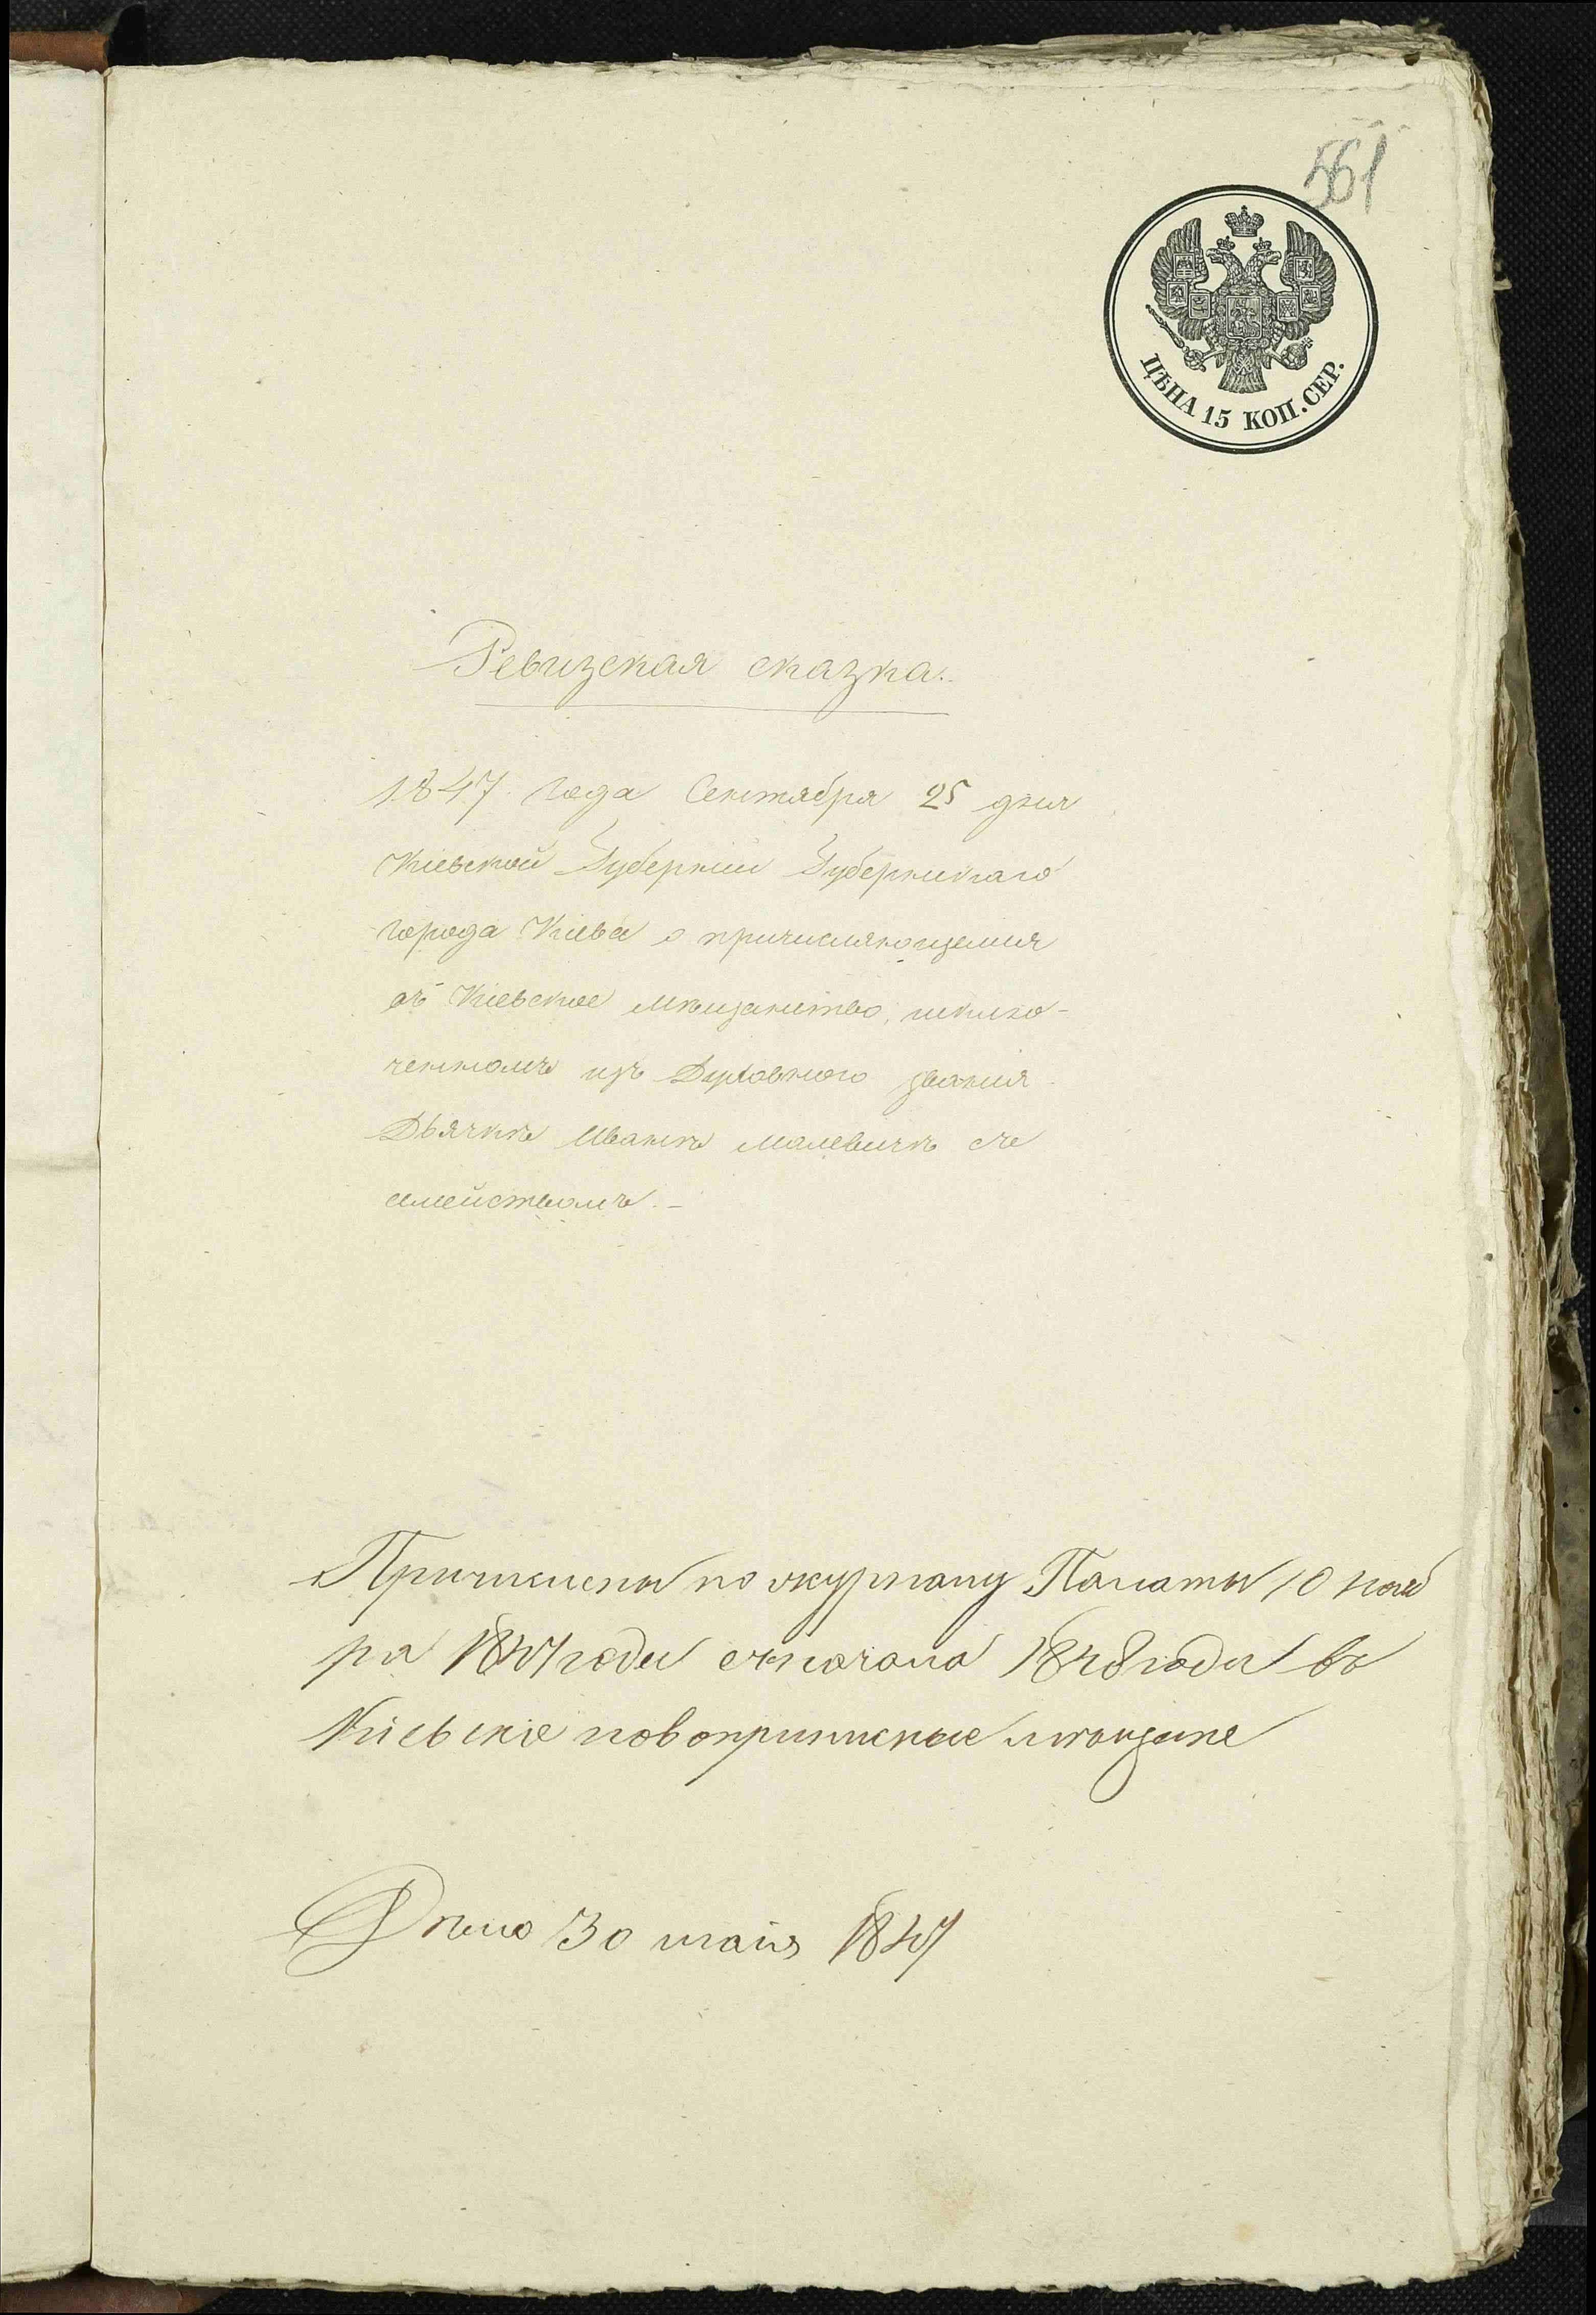 561
ЦѢНА 15 КОП. СЕР.
Ревизская сказка.
1847 года Сентября 25 дня
Кіевской Губерніи Губернскаго
города Кіева о причисляющемся
въ Кіевское мѣщанство, исклю-
ченномъ изъ Духовного званія
Дьячкѣ Иванѣ Малевичѣ съ
семействомъ. -
Причислены по журналу Палаты 10 нояб
ря 1847 года съ начала 1848 года въ
Кіевскіе новоприписные мѣщане
Дѣло 30 маія 1847